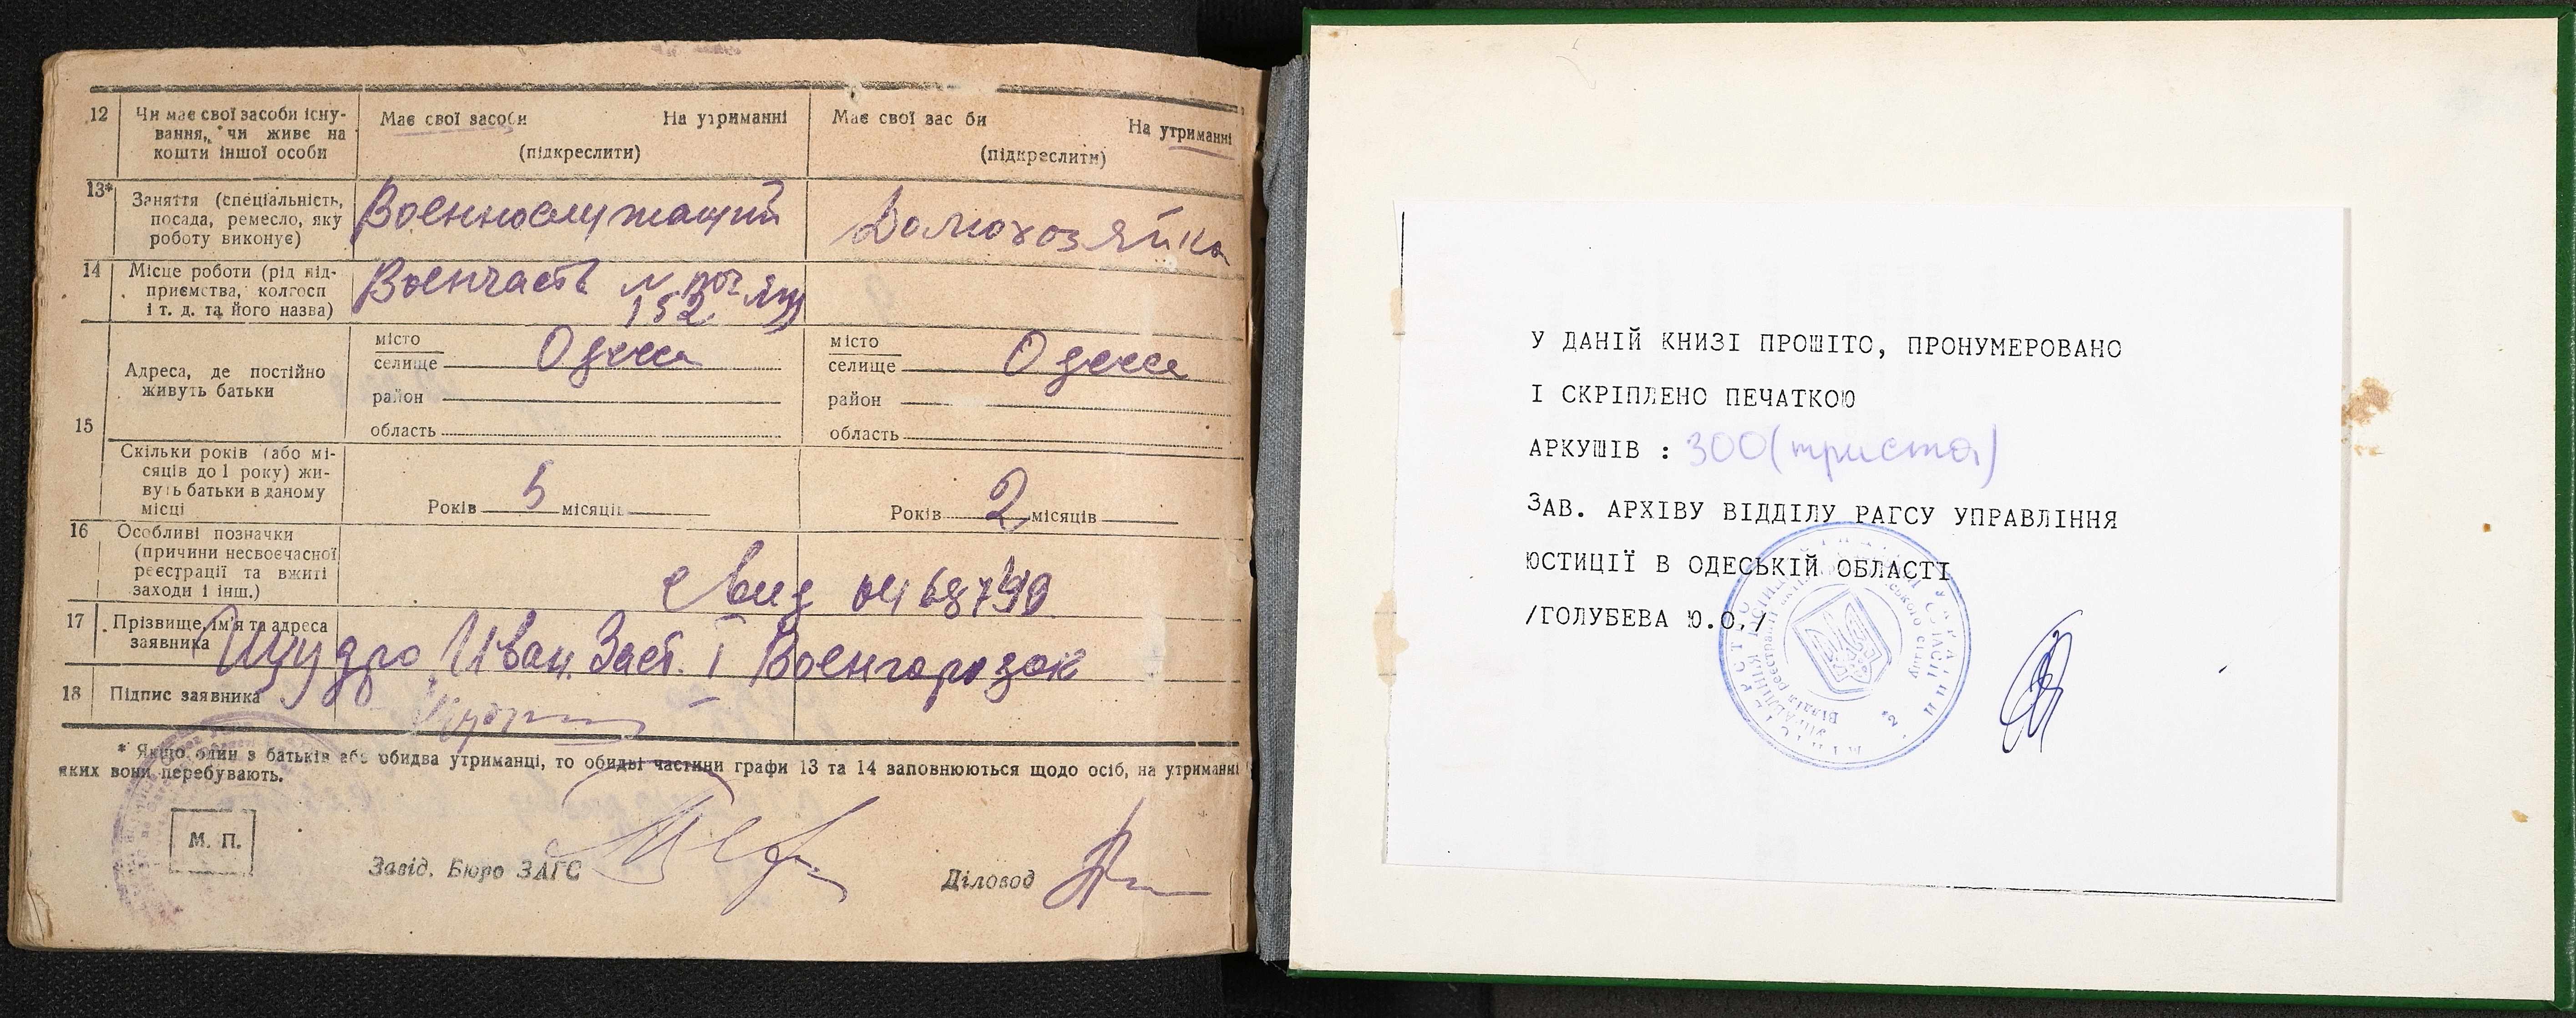 12 Чи має свої засоби існу-
вання, чи живе на
кошти іншої особи
Має свої засоби На утриманні
(підкреслити)
Має свої зас би На утриманні
(підкреслити)
13* Заняття (спеціальність,
посада, ремесло, яку
роботу виконує)
Военнослужащий
Домохозяйка
14 Місце роботи (рід під-
приємства, колгосп
і т. д. та його назва)
Военчасть
152
15
Адреса, де постійно
живуть батьки
місто
селище Одесса
район
область
місто
селище Одесса
район
область
Скільки років (або мі-
сяців до 1 року) жи-
вуть батьки в даному
місці
Років 5 місяців
Років 2 місяців
16 Особливі позначки
(причини несвоєчасної
реєстрації та вжиті
заходи і інш.)
Свид
17 Прізвище, ім'я та адреса
заявника
Щудро Иван. Заст. I Военгородок
18 Підпис заявника
* Якщо один з батьків або обидва утриманці, то обидві частини графи 13 та 14 заповнюються щодо осіб, на утриманні
яких вони перебувають.
М. П.
Завід. Бюро ЗАГС
Діловод
У ДАНІЙ КНИЗІ ПРОШІТО, ПРОНУМЕРОВАНО
І СКРІПЛЕНО ПЕЧАТКОЮ
АРКУШІВ : 300 (триста)
ЗАВ. АРХІВУ ВІДДІЛУ РАГСУ УПРАВЛІННЯ
ЮСТИЦІЇ В ОДЕСЬКІЙ ОБЛАСТІ
/ГОЛУБЕВА Ю.О./